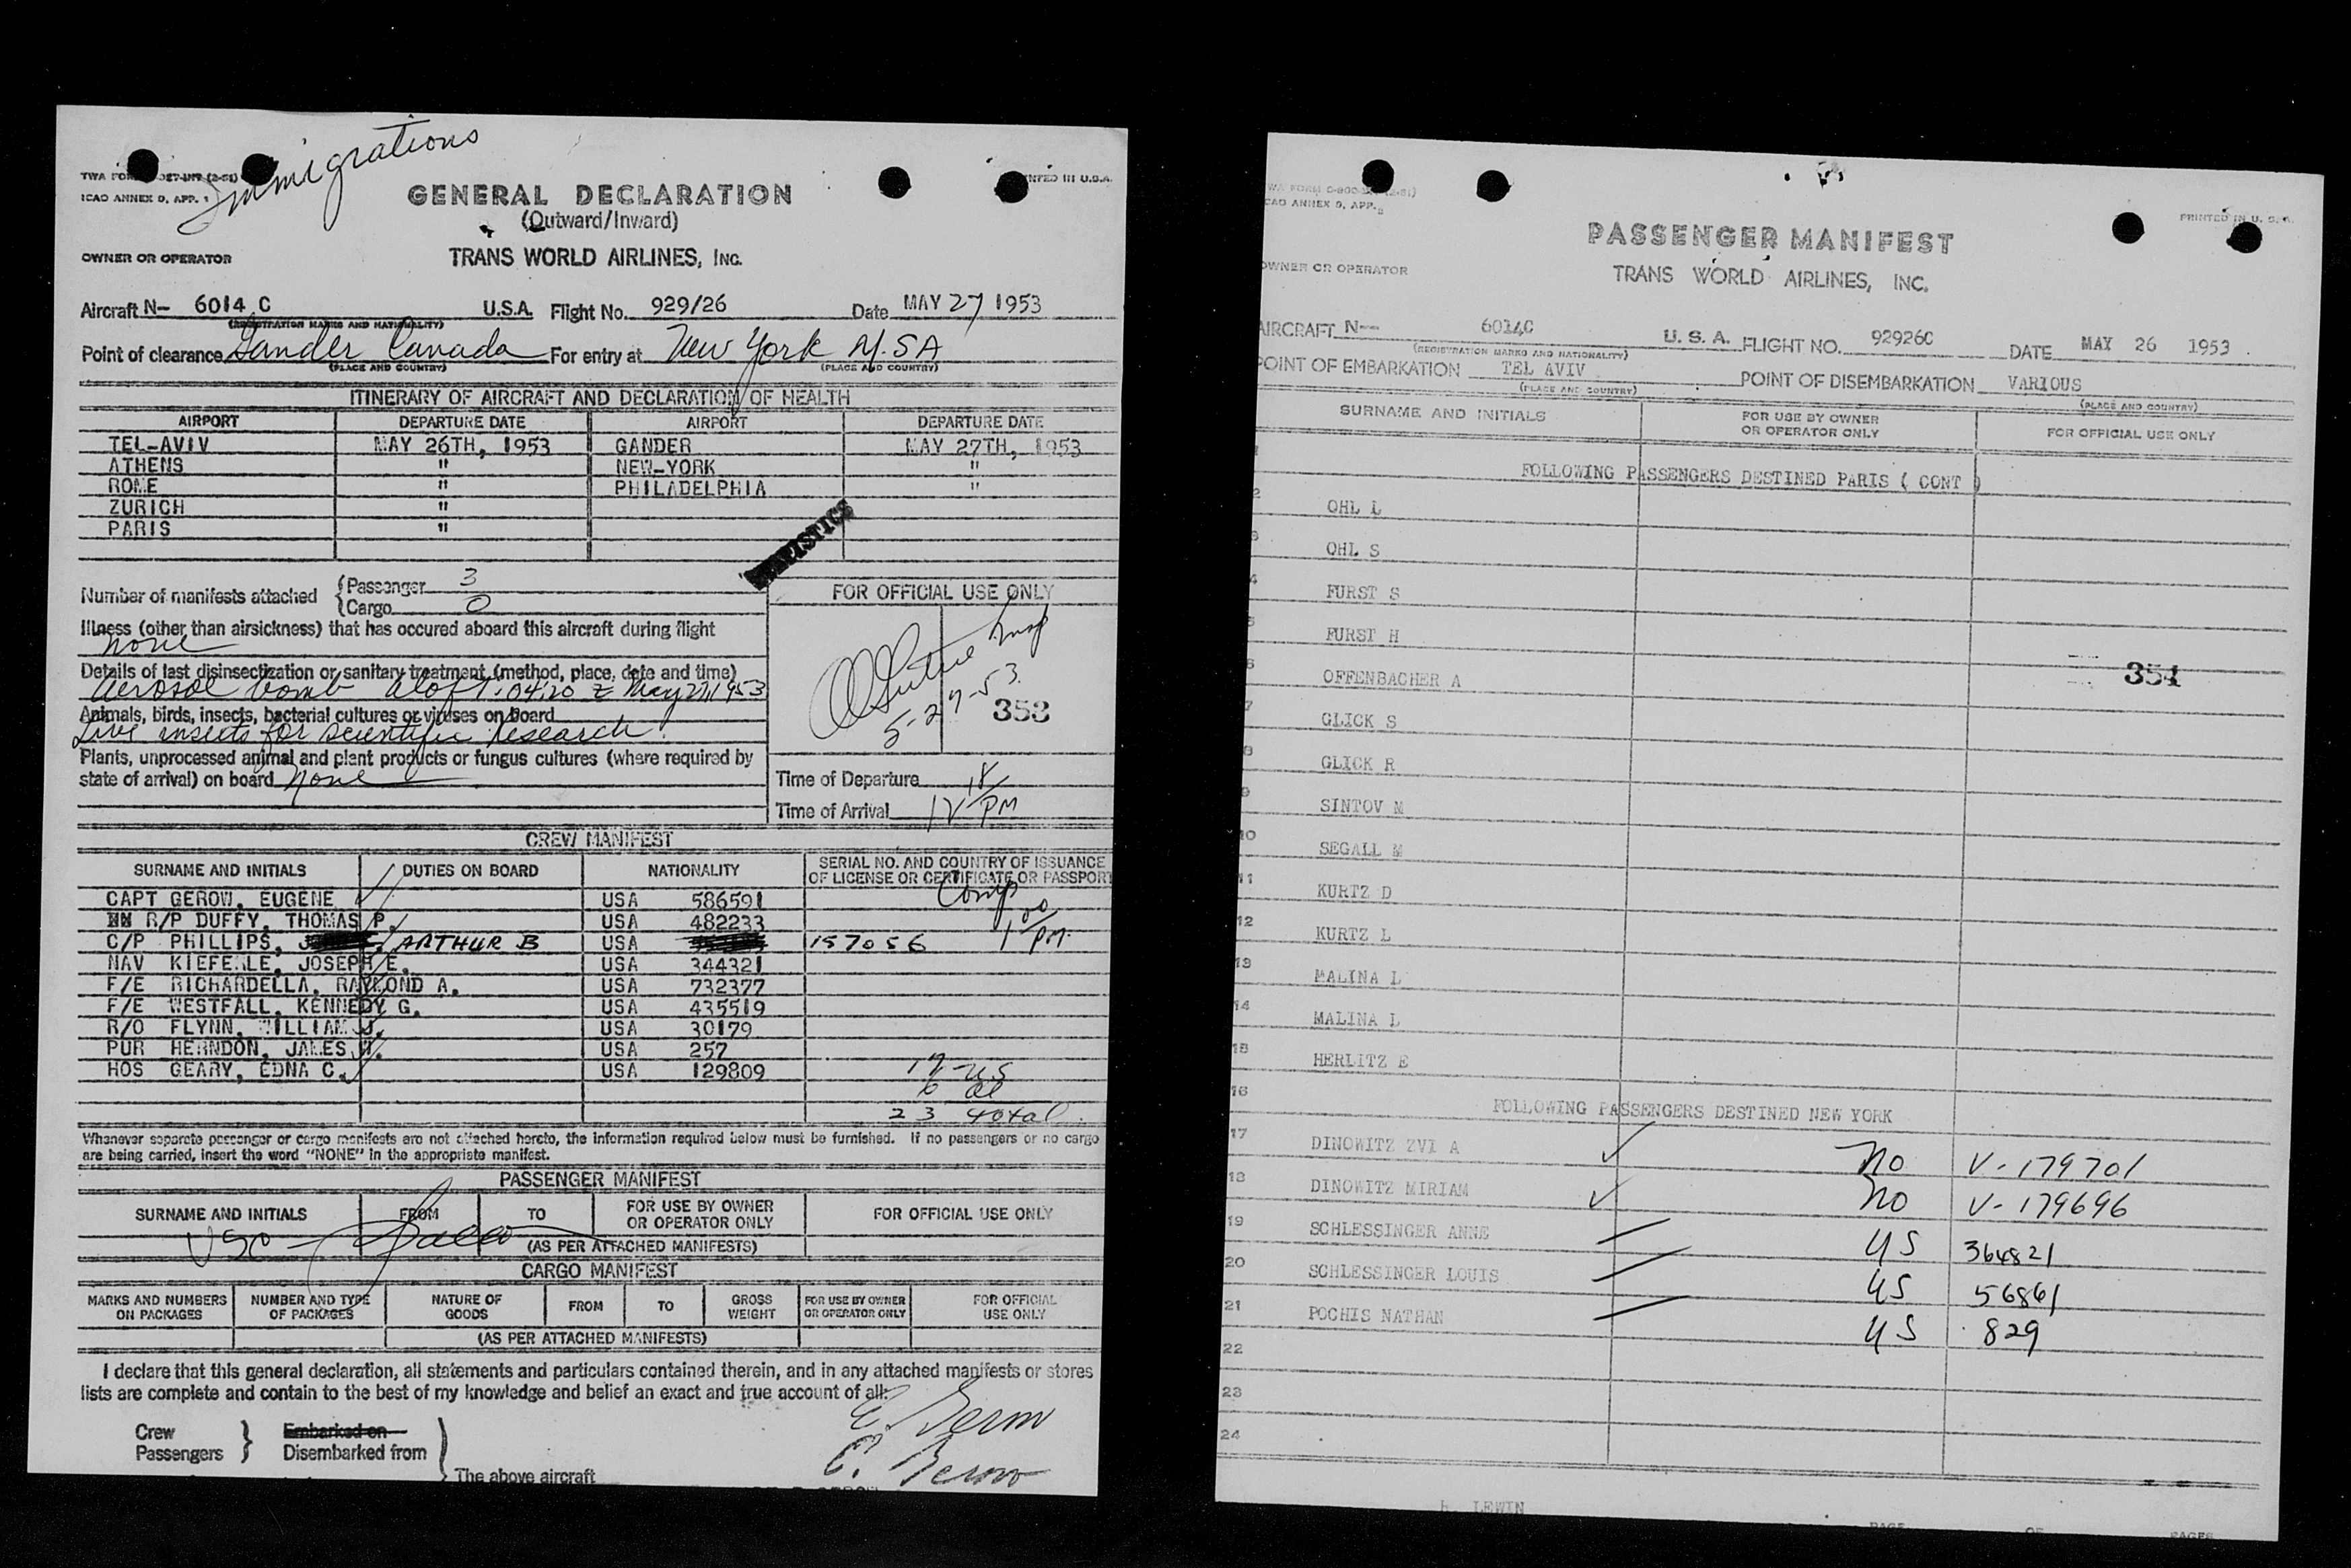 Immigrations
ICAO ANNEX 9, APP. 1
GENERAL DECLARATION
(Outward/Inward)
OWNER OR OPERATOR
TRANS WORLD AIRLINES, INC.
Aircraft N- 6014 C U.S.A. Flight No. 929/26 Date MAY 27 1953
(REGISTRATION MARKS AND NATIONALITY)
Point of clearance Gander Canada For entry at New York U.S.A
(PLACE AND COUNTRY) (PLACE AND COUNTRY)
ITINERARY OF AIRCRAFT AND DECLARATION OF HEALTH
AIRPORT DEPARTURE DATE AIRPORT DEPARTURE DATE
TEL-AVIV MAY 26TH, 1953 GANDER MAY 27TH, 1953
ATHENS " NEW-YORK "
ROME " PHILADELPHIA "
ZURICH "
PARIS "
STATISTICS
Number of manifests attached { Passenger 3
{ Cargo 0
FOR OFFICIAL USE ONLY
Illness (other than airsickness) that has occured aboard this aircraft during flight
none
Details of last disinsectization or sanitary treatment (method, place, date and time)
Aerosol bomb aloft. 0420 z May 27, 1953
5-27-53
353
Animals, birds, insects, bacterial cultures or viruses on board
Live insects for scientific research.
Plants, unprocessed animal and plant products or fungus cultures (where required by
state of arrival) on board none
Time of Departure
Time of Arrival 12 18/PM
CREW MANIFEST
SURNAME AND INITIALS DUTIES ON BOARD NATIONALITY SERIAL NO. AND COUNTRY OF ISSUANCE
OF LICENSE OR CERTIFICATE OR PASSPORT
Comp
1 00/PM
CAPT GEROW, EUGENE USA 586591
R/P DUFFY, THOMAS P. USA 482233
C/P PHILLIPS, ARTHUR B USA 157056
NAV KIEFERLE, JOSEPH E. USA 344321
F/E RICHARDELLA, RAYMOND A. USA 732377
F/E WESTFALL, KENNEDY G. USA 435519
R/O FLYNN, WILLIAM J. USA 30179
PUR HERNDON, JAMES W. USA 257
HOS GEARY, EDNA C. USA 129809
17 US
6 al
23 total.
Whenever separate passenger or cargo manifests are not attached hereto, the information required below must be furnished. If no passengers or no cargo
are being carried, insert the word "NONE" in the appropriate manifest.
PASSENGER MANIFEST
SURNAME AND INITIALS FROM TO FOR USE BY OWNER
OR OPERATOR ONLY FOR OFFICIAL USE ONLY
(AS PER ATTACHED MANIFESTS)
CARGO MANIFEST
MARKS AND NUMBERS
ON PACKAGES NUMBER AND TYPE
OF PACKAGES NATURE OF
GOODS FROM TO GROSS
WEIGHT FOR USE BY OWNER
OR OPERATOR ONLY FOR OFFICIAL
USE ONLY
(AS PER ATTACHED MANIFESTS)
I declare that this general declaration, all statements and particulars contained therein, and in any attached manifests or stores
lists are complete and contain to the best of my knowledge and belief an exact and true account of all:
Crew
Passengers } Embarked on
Disembarked from
The above aircraft
E. Gerow
E. Gerow
PRINTED IN U. S. A.
PASSENGER MANIFEST
OWNER OR OPERATOR
TRANS WORLD AIRLINES, INC.
AIRCRAFT N-- 6014C U. S. A. FLIGHT NO. 92926C DATE MAY 26 1953
(REGISTRATION MARKS AND NATIONALITY)
POINT OF EMBARKATION TEL AVIV POINT OF DISEMBARKATION VARIOUS
(PLACE AND COUNTRY) (PLACE AND COUNTRY)
SURNAME AND INITIALS FOR USE BY OWNER
OR OPERATOR ONLY FOR OFFICIAL USE ONLY
1 FOLLOWING PASSENGERS DESTINED PARIS ( CONT )
2 OHL L
3 OHL S
4 FURST S
5 FURST H
6 OFFENBACHER A 354
7 GLICK S
8 GLICK R
9 SINTOV M
10 SEGALL M
11 KURTZ D
12 KURTZ L
13 MALINA L
14 MALINA L
15 HERLITZ E
16 FOLLOWING PASSENGERS DESTINED NEW YORK
17 DINOWITZ ZVI A no V-179701
18 DINOWITZ MIRIAM no V-179696
19 SCHLESSINGER ANNE US 364821
20 SCHLESSINGER LOUIS US 56861
21 POCHIS NATHAN US 829
22
23
24
LEWIN
PAGE OF PAGES